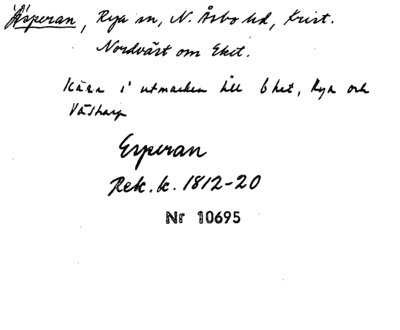 Äsperan, Rya sn, N. Åsbo hd, Krist.
Nordväst om Eket.
Kärr i utmarken till Eket, Rya och
Västrarp
Esperan
Rek. k. 1812-20
Nr 10695